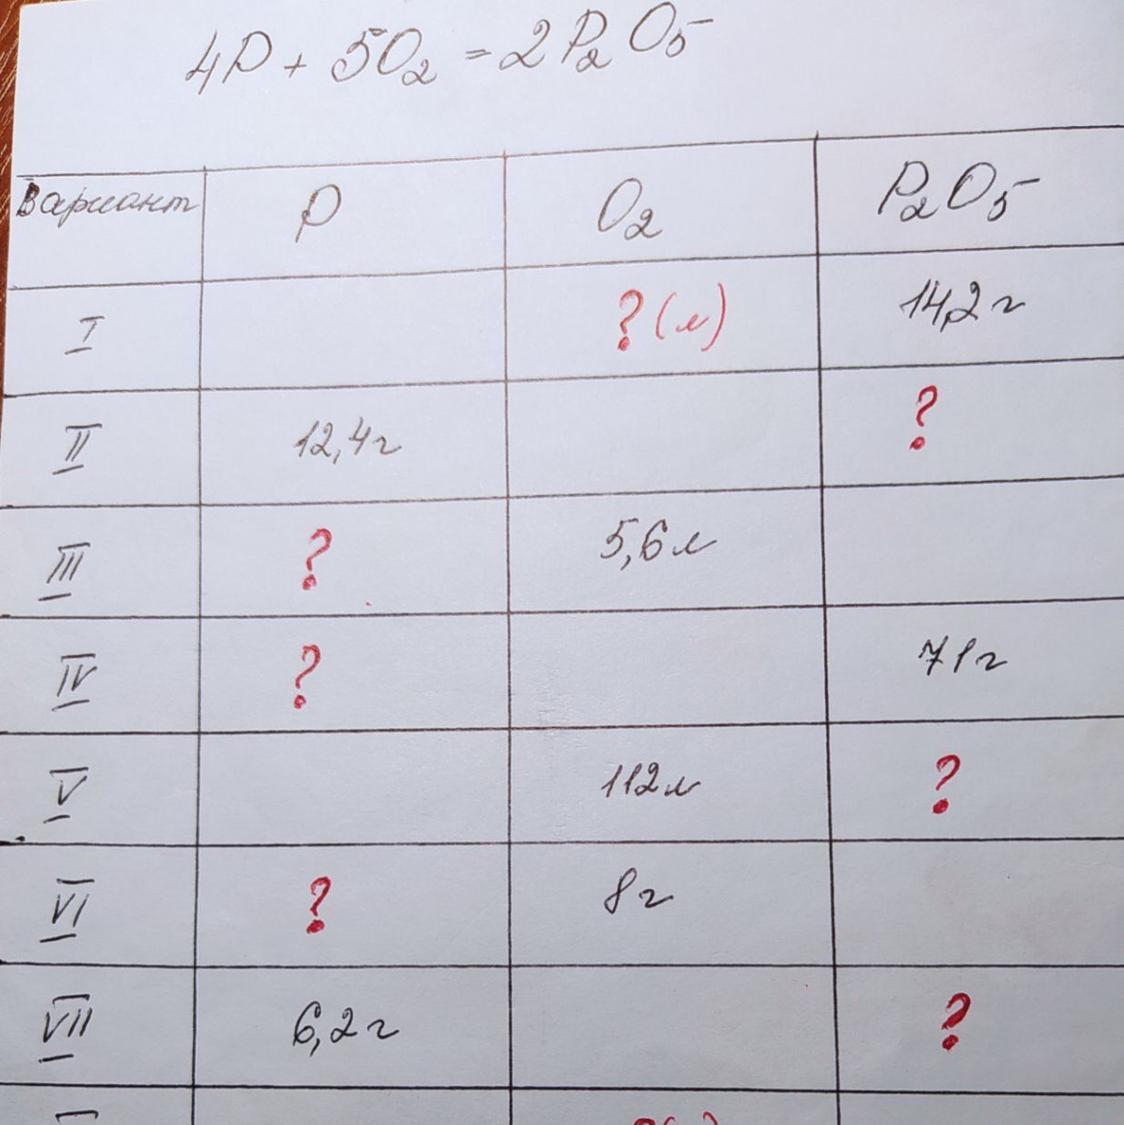 4P + 5O₂ = 2P₂O₅
Вариант P O₂ P₂O₅
I ? (л) 14,2 г
II 12,4 г ?
III ? 5,6 л
IV ? 71 г
V 112 л ?
VI ? 8 г
VII 6,2 г ?